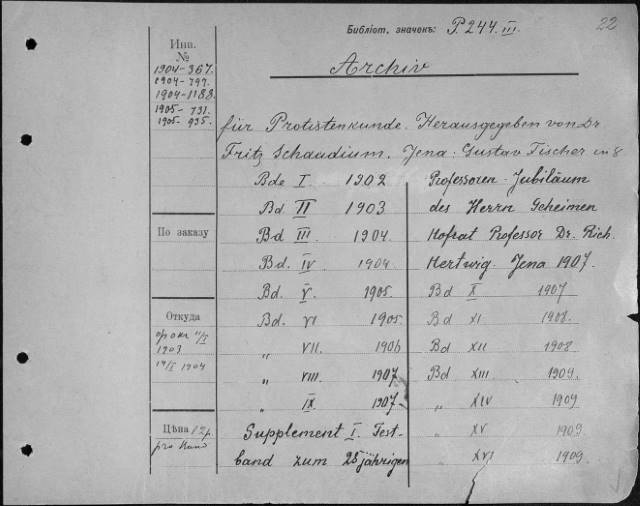 Библіот. значекъ: P. 244. III.
22
Archiv
für Protistenkunde. Herausgegeben von Dr
Fritz Schaudium. Jena: Gustav Fischer in 8
Bde I. 1902
Bd II 1903
Bd III 1904.
Bd. IV 1904.
Bd. V. 1905.
Bd. VI 1905.
„ VII. 1906
„ VIII. 1907.
„ IX 1907.
Supplement I. Fest-
band zum 25 jährigen
Professoren-Jubiläum
des Herrn Geheimen
Hofrat Professor Dr. Rich.
Hertwig. Jena 1907.
Bd X 1907
Bd XI 1908.
Bd XII 1908
Bd XIII 1909.
„ XIV 1909
„ XV 1909
„ XVI 1909.
Инв.
№
1904-367.
1904-797.
1904-1188.
1905-731.
1905-935.
По заказу
Откуда
1903
1904
Цѣна 12 р.
pro Band